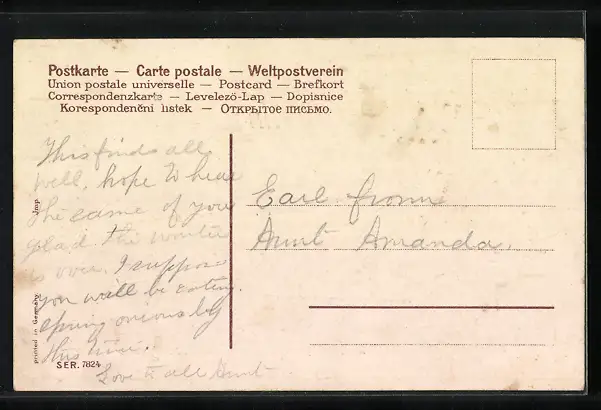 Postkarte — Carte postale — Weltpostverein
Union postale universelle — Postcard — Brefkort
Correspondenzkarte — Levelező-Lap — Dopisnice
Korespondenční lístek — Открытое письмо.
This finds all
well, hope to hear
the same of you
glad the winter
is over. I suppose
you will be eating
spring onions by
this time.
Love to all Aunt
Earl from
Aunt Amanda.
Jmp.
printed in Germany
SER. 7824